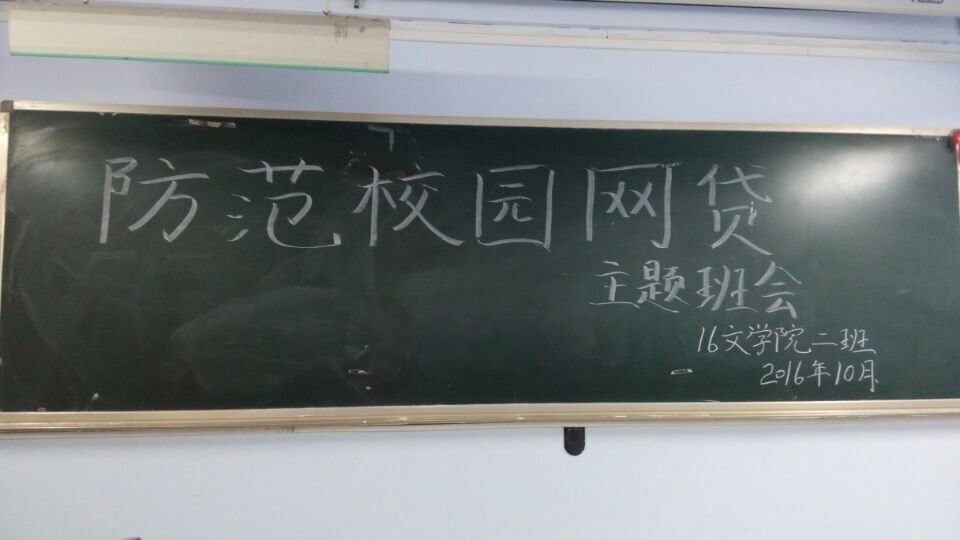 防范校园网贷
主题班会
16文学院二班
2016年10月